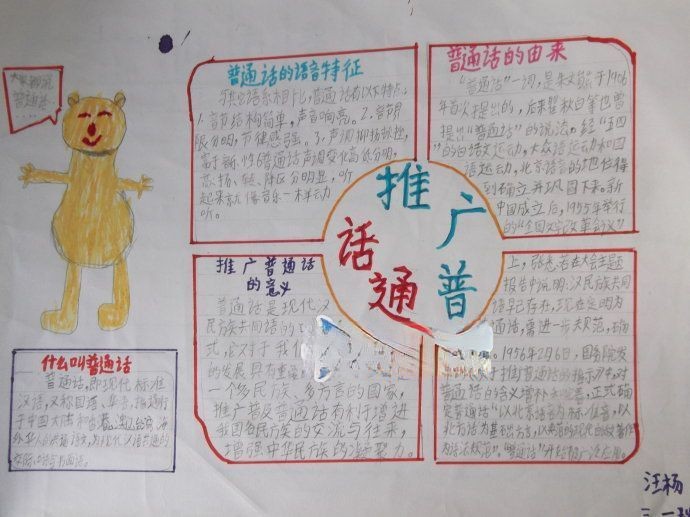 大家都说
普通话
普通话的语音特征
与其它语系相比,普通话有以下特点:
1.音节结构简单,声音响亮。2.音节
限分明,节律感强。3.声调抑扬顿挫,
普通话声调变化高低分明,
听
起来就像音乐一样动
听。
普通话的由来
“普通话”一词,是朱文熊于1906
年首次提出的,后来瞿秋白等也曾
提出“普通话”的说法。经“五四”
的白话文运动,大众语运动和国
语运动,北京语音的地位得
到确立并巩固下来。新
中国成立后,1955年举行
的“全国文字改革会议”
推广普通话
推广普通话
的意义
普通话是现代汉
民族共同语的
式,这对于我
的发展具有重
一个多民族、多方言的国家,
推广普及普通话有利于增进
我国各民族的交流与往来,
增强中华民族的凝聚力。
上,张奚若在大会主题
报告中说明:汉民族共同
语早已存在,现在定名为
通话,需进一步规范,确
。1956年2月6日,国务院发
关于推广普通话的指示》中,对
普通话的含义增补和完善,正式确
定普通话“以北京语音为标准音,以
北方话为基础方言,以典范的现代白话文著作
为语法规范”,“普通话”开始推广应用。
什么叫普通话
普通话,即现代标准
汉语,又称国语、华语,指通行
于中国大陆和
华人的共通语文,为现代汉语共通的
交际口语与书面语。
汪杨